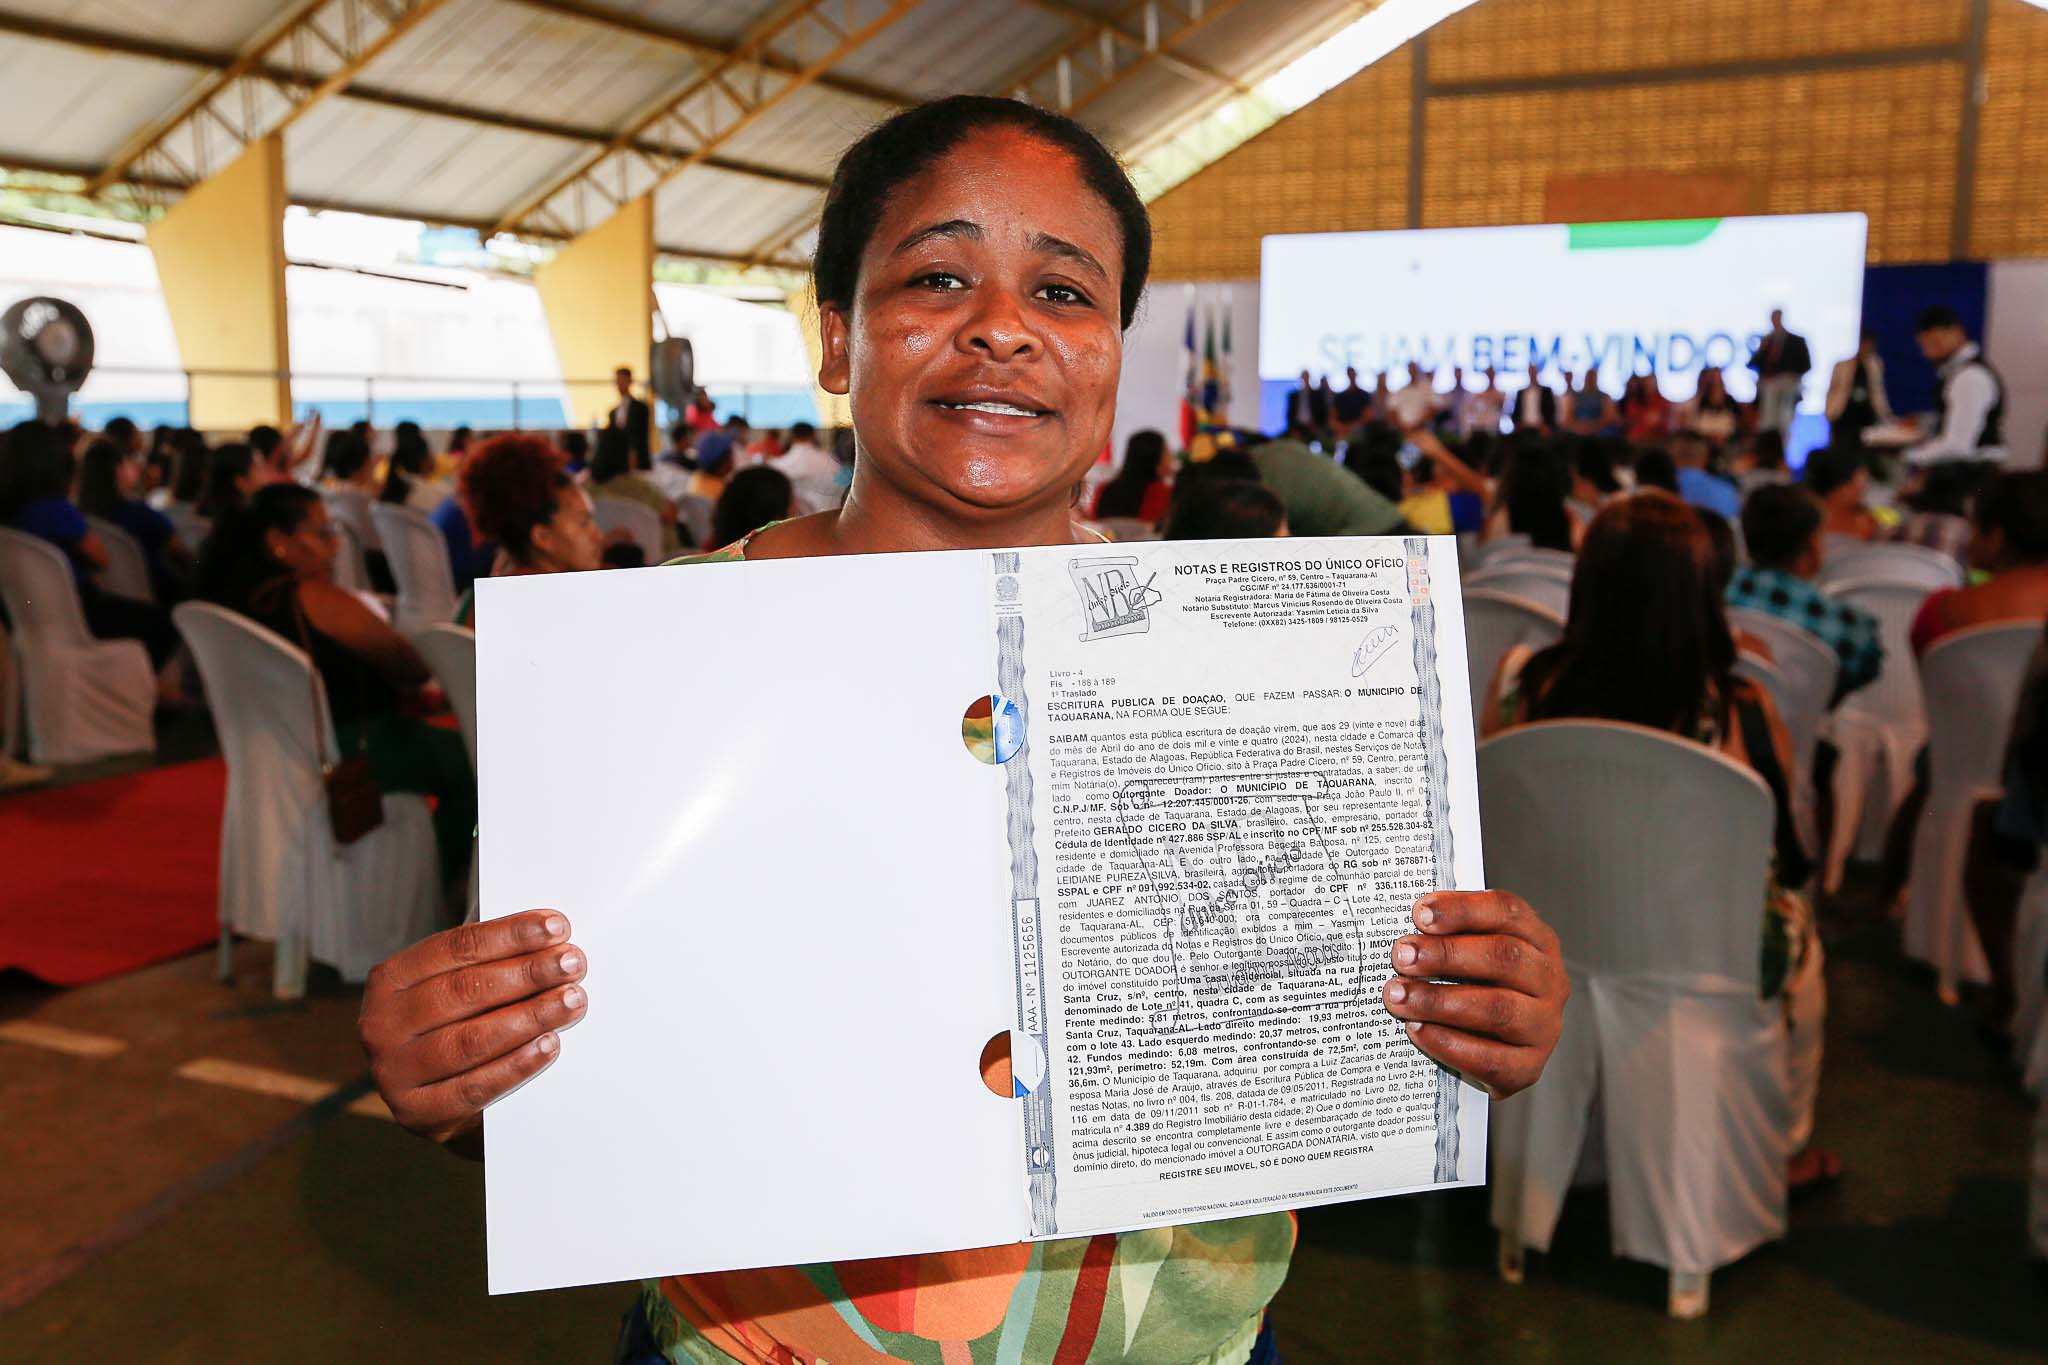 SEJAM BEM-VINDOS
NOTAS E REGISTROS DO ÚNICO OFÍCIO
Praça Padre Cícero, nº 59, Centro – Taquarana-Al
CGC/MF nº 24.177.636/0001-71
Notária Registradora: Maria de Fátima de Oliveira Costa
Notário Substituto: Marcus Vinicius Rosendo de Oliveira Costa
Escrevente Autorizada: Yasmim Leticia da Silva
Telefone: (0XX82) 3425-1809 / 98125-0529
Livro - 4
Fls - 188 à 189
1º Traslado
ESCRITURA PUBLICA DE DOAÇAO, QUE FAZEM PASSAR: O MUNICIPIO DE
TAQUARANA, NA FORMA QUE SEGUE:
SAIBAM quantos esta pública escritura de doação virem, que aos 29 (vinte e nove) dias
do mês de Abril do ano de dois mil e vinte e quatro (2024), nesta cidade e Comarca de
Taquarana, Estado de Alagoas, República Federativa do Brasil, nestes Serviços de Notas
e Registros de Imóveis do Único Ofício, sito à Praça Padre Cícero, nº 59, Centro, perante
mim Notária(o), compareceu (ram) partes entre si justas e contratadas, a saber; de um
lado como Outorgante Doador: O MUNICÍPIO DE TAQUARANA, inscrito no
C.N.P.J/MF. Sob o nº 12.207.445/0001-26, com sede na Praça João Paulo II, nº 04,
centro, nesta cidade de Taquarana, Estado de Alagoas, por seu representante legal, o
Prefeito GERALDO CICERO DA SILVA, brasileiro, casado, empresário, portador da
Cédula de Identidade nº 427.886 SSP/AL e inscrito no CPF/MF sob nº 255.528.304-82
residente e domiciliado na Avenida Professora Benedita Barbosa, nº 125, centro desta
cidade de Taquarana-AL. E do outro lado, na qualidade de Outorgado Donatária,
LEIDIANE PUREZA SILVA, brasileira, agricultora, portadora do RG sob nº 3678871-6
SSPAL e CPF nº 091.992.534-02, casada, sob o regime de comunhão parcial de bens
com JUAREZ ANTONIO DOS SANTOS, portador do CPF nº 336.118.168-25.
residentes e domiciliados na Rua da Serra 01, 59 – Quadra – C – Lote 42, nesta
de Taquarana-AL, CEP: 57.640-000; ora comparecentes e reconhecidas
documentos públicos de identificação exibidos a mim – Yasmim Leticia da
Escrevente autorizada do Notas e Registros do Único Ofício, que esta subscreve,
do Notário, do que dou fé. Pelo Outorgante Doador, me foi dito: 1)
OUTORGANTE DOADOR é senhor e legítimo possuidor a justo título do
do imóvel constituído por: Uma casa residencial, situada na rua
Santa Cruz, s/nº, centro, nesta cidade de Taquarana-AL, edificada
denominado de Lote nº 41, quadra C, com as seguintes medidas e
Frente medindo: 5,81 metros, confrontando-se com a rua projetada
Santa Cruz, Taquarana-AL. Lado direito medindo: 19,93 metros,
com o lote 43. Lado esquerdo medindo: 20,37 metros, confrontando-se
42. Fundos medindo: 6,08 metros, confrontando-se com o lote 15.
121,93m², perímetro: 52,19m. Com área construída de 72,5m², com
36,6m. O Município de Taquarana, adquiriu por compra a Luiz Zacarias de Araújo
esposa Maria José de Araújo, através de Escritura Pública de Compra e Venda
nestas Notas, no livro nº 004, fls. 208, datada de 09/05/2011, Registrada no Livro 2-H, fls
116 em data de 09/11/2011 sob nº R-01-1.784, e matriculado no Livro 02, ficha 01
matricula nº 4.389 do Registro Imobiliário desta cidade; 2) Que o domínio direto do terreno
acima descrito se encontra completamente livre e desembaraçado de todo e qualquer
ônus judicial, hipoteca legal ou convencional. E assim como o outorgante doador possui o
domínio direto, do mencionado imóvel a OUTORGADA DONATÁRIA, visto que o domínio
REGISTRE SEU IMOVEL, SÓ É DONO QUEM REGISTRA
VÁLIDO EM TODO O TERRITÓRIO NACIONAL, QUALQUER ADULTERAÇÃO OU RASURA INVALIDA ESTE DOCUMENTO
AAA - Nº 1125656